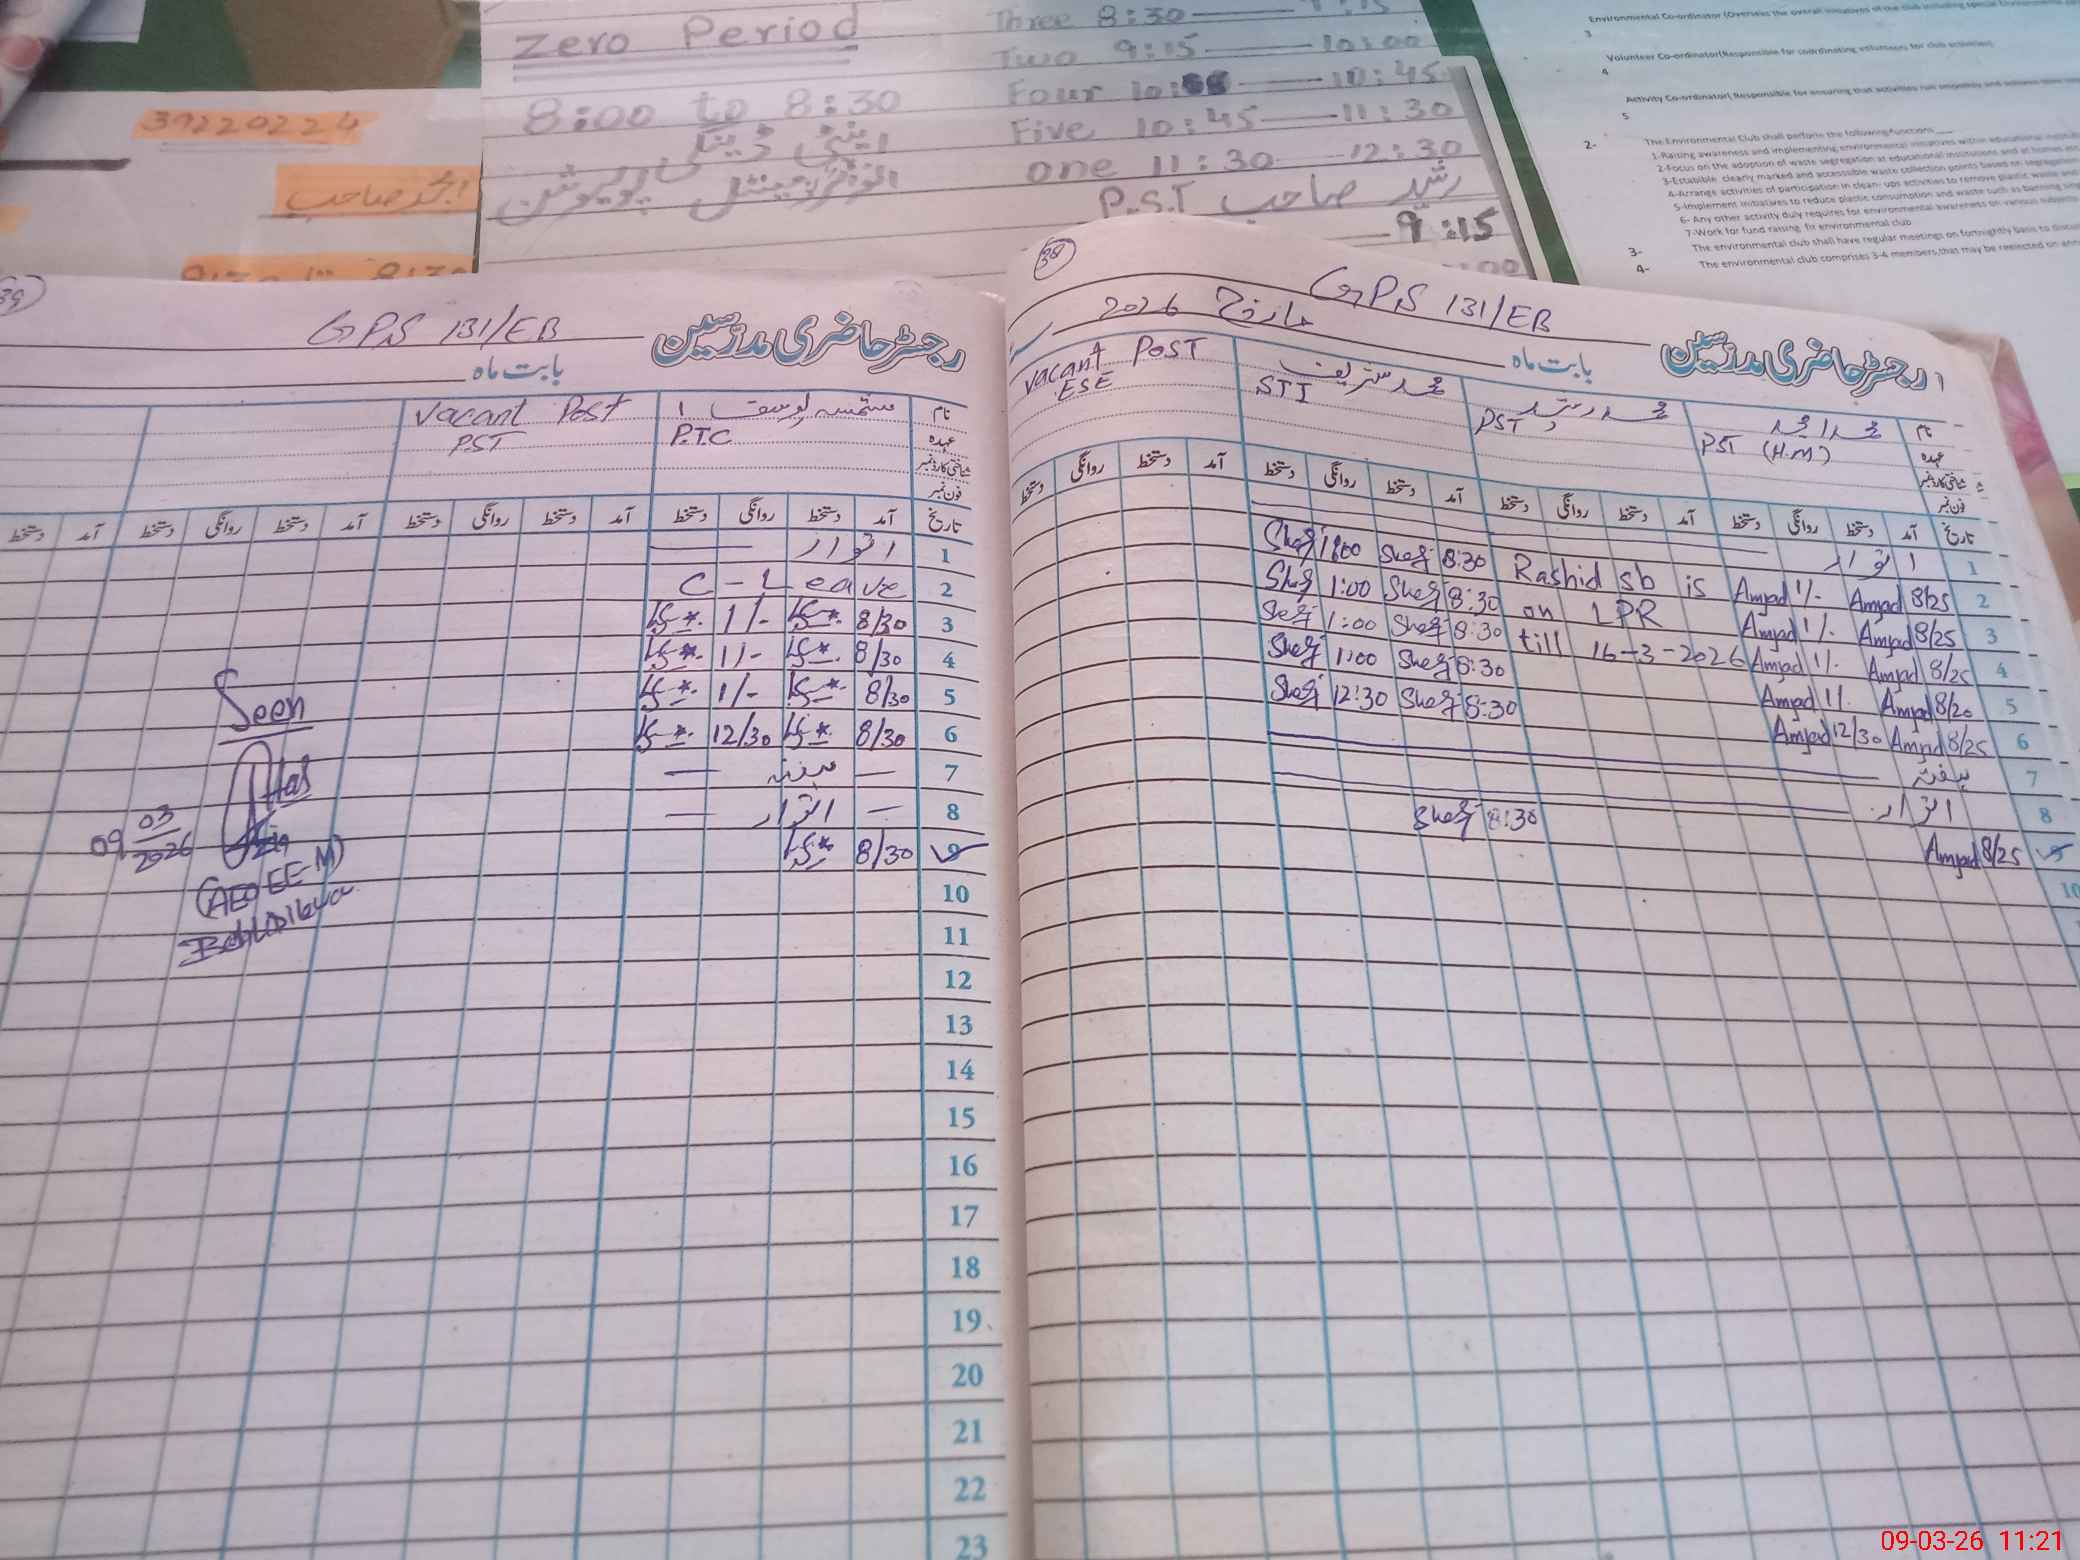 Zero Period
8:00 to 8:30
اینٹی ڈینگی
Three 8:30 — 9:15
Two 9:15 — 10:00
Four 10: — 10:45
Five 10:45 — 11:30
one 11:30 — 12:30
P.S.T رشید صاحب
9:15
39220224
امجد صاحب
Environmental Co-ordinator (Oversees the overall initiatives of the club including special Environmental
3
Volunteer Co-ordinator(Responsible for coordinating volunteers for club activities)
4
Activity Co-ordinator( Responsible for ensuring that activities run smoothly and
5
2- The Environmental Club shall perform the following functions
1-Raising awareness and implementing environmental initiatives within educational
2-Focus on the adoption of waste segregation at educational institutions and at homes
3-Establish clearly marked and accessible waste collection points based on segregation
4-Arrange activities of participation in clean- ups activities to remove plastic waste and
5-Implement initiatives to reduce plastic consumption and waste such as banning
6- Any other activity duly requires for environmental awareness on various subjects
7-Work for fund raising fir environmental club
3- The environmental club shall have regular meetings on fortnightly basis to
4- The environmental club comprises 3-4 members,that may be reelected on
38
GPS 131/EB
مارچ 2026
رجسٹر حاضری مدرسین
بابت ماہ
نام محمد امجد محمد رشید محمد شریف Vacant Post
عہدہ PST (H.M) PST STI ESE
شناختی کارڈ نمبر
فون نمبر
تاریخ آمد دستخط روانگی دستخط آمد دستخط روانگی دستخط آمد دستخط روانگی دستخط آمد دستخط روانگی دستخط
1 اتوار
2 Amjad 8/25 Amjad 1/- Rashid sb is 8:30 1:00
3 Amjad 8/25 Amjad 1/- on LPR 8:30 1:00
4 Amjad 8/25 Amjad 1/- till 16-3-2026 8:30 1:00
5 Amjad 8/20 Amjad 1/- 8:30 1:00
6 Amjad 8/25 Amjad 12/30 8:30 12:30
7 ہفتہ
8 اتوار
9 Amjad 8/25 8:30
10
39
GPS 131/EB
رجسٹر حاضری مدرسین
بابت ماہ
نام Vacant Post
عہدہ P.T.C PST
شناختی کارڈ نمبر
فون نمبر
تاریخ آمد دستخط روانگی دستخط آمد دستخط روانگی دستخط آمد دستخط روانگی دستخط آمد دستخط
1 اتوار
2 C-Leave
3 8/30 1/-
4 8/30 1/-
5 8/30 1/-
6 8/30 12/30
7 ہفتہ
8 اتوار
9 8/30
10
11
12
13
14
15
16
17
18
19
20
21
22
23
Seen
09 03
2026
(AEO EE-M)
09-03-26 11:21